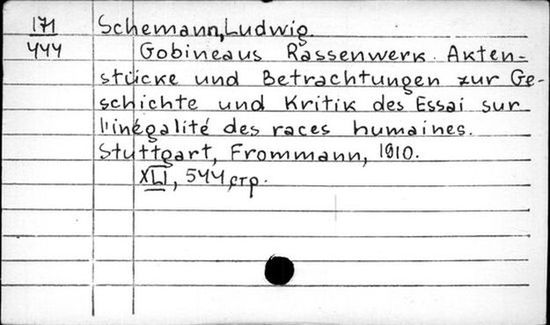 171
444
Schemann, Ludwig.
Gobineaus Rassenwerk. Akten-
stücke und Betrachtungen zur Ge-
schichte und Kritik des Essai sur
l'inégalité des races humaines.
Stuttgart, Frommann, 1910.
XLI, 544 стр.